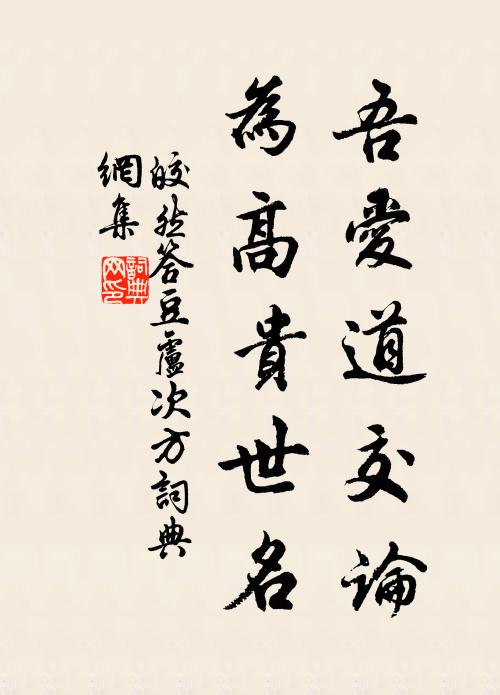 吾愛道交論
為高貴世名
皎然答豆盧次方詞典
網集
詞典
网印